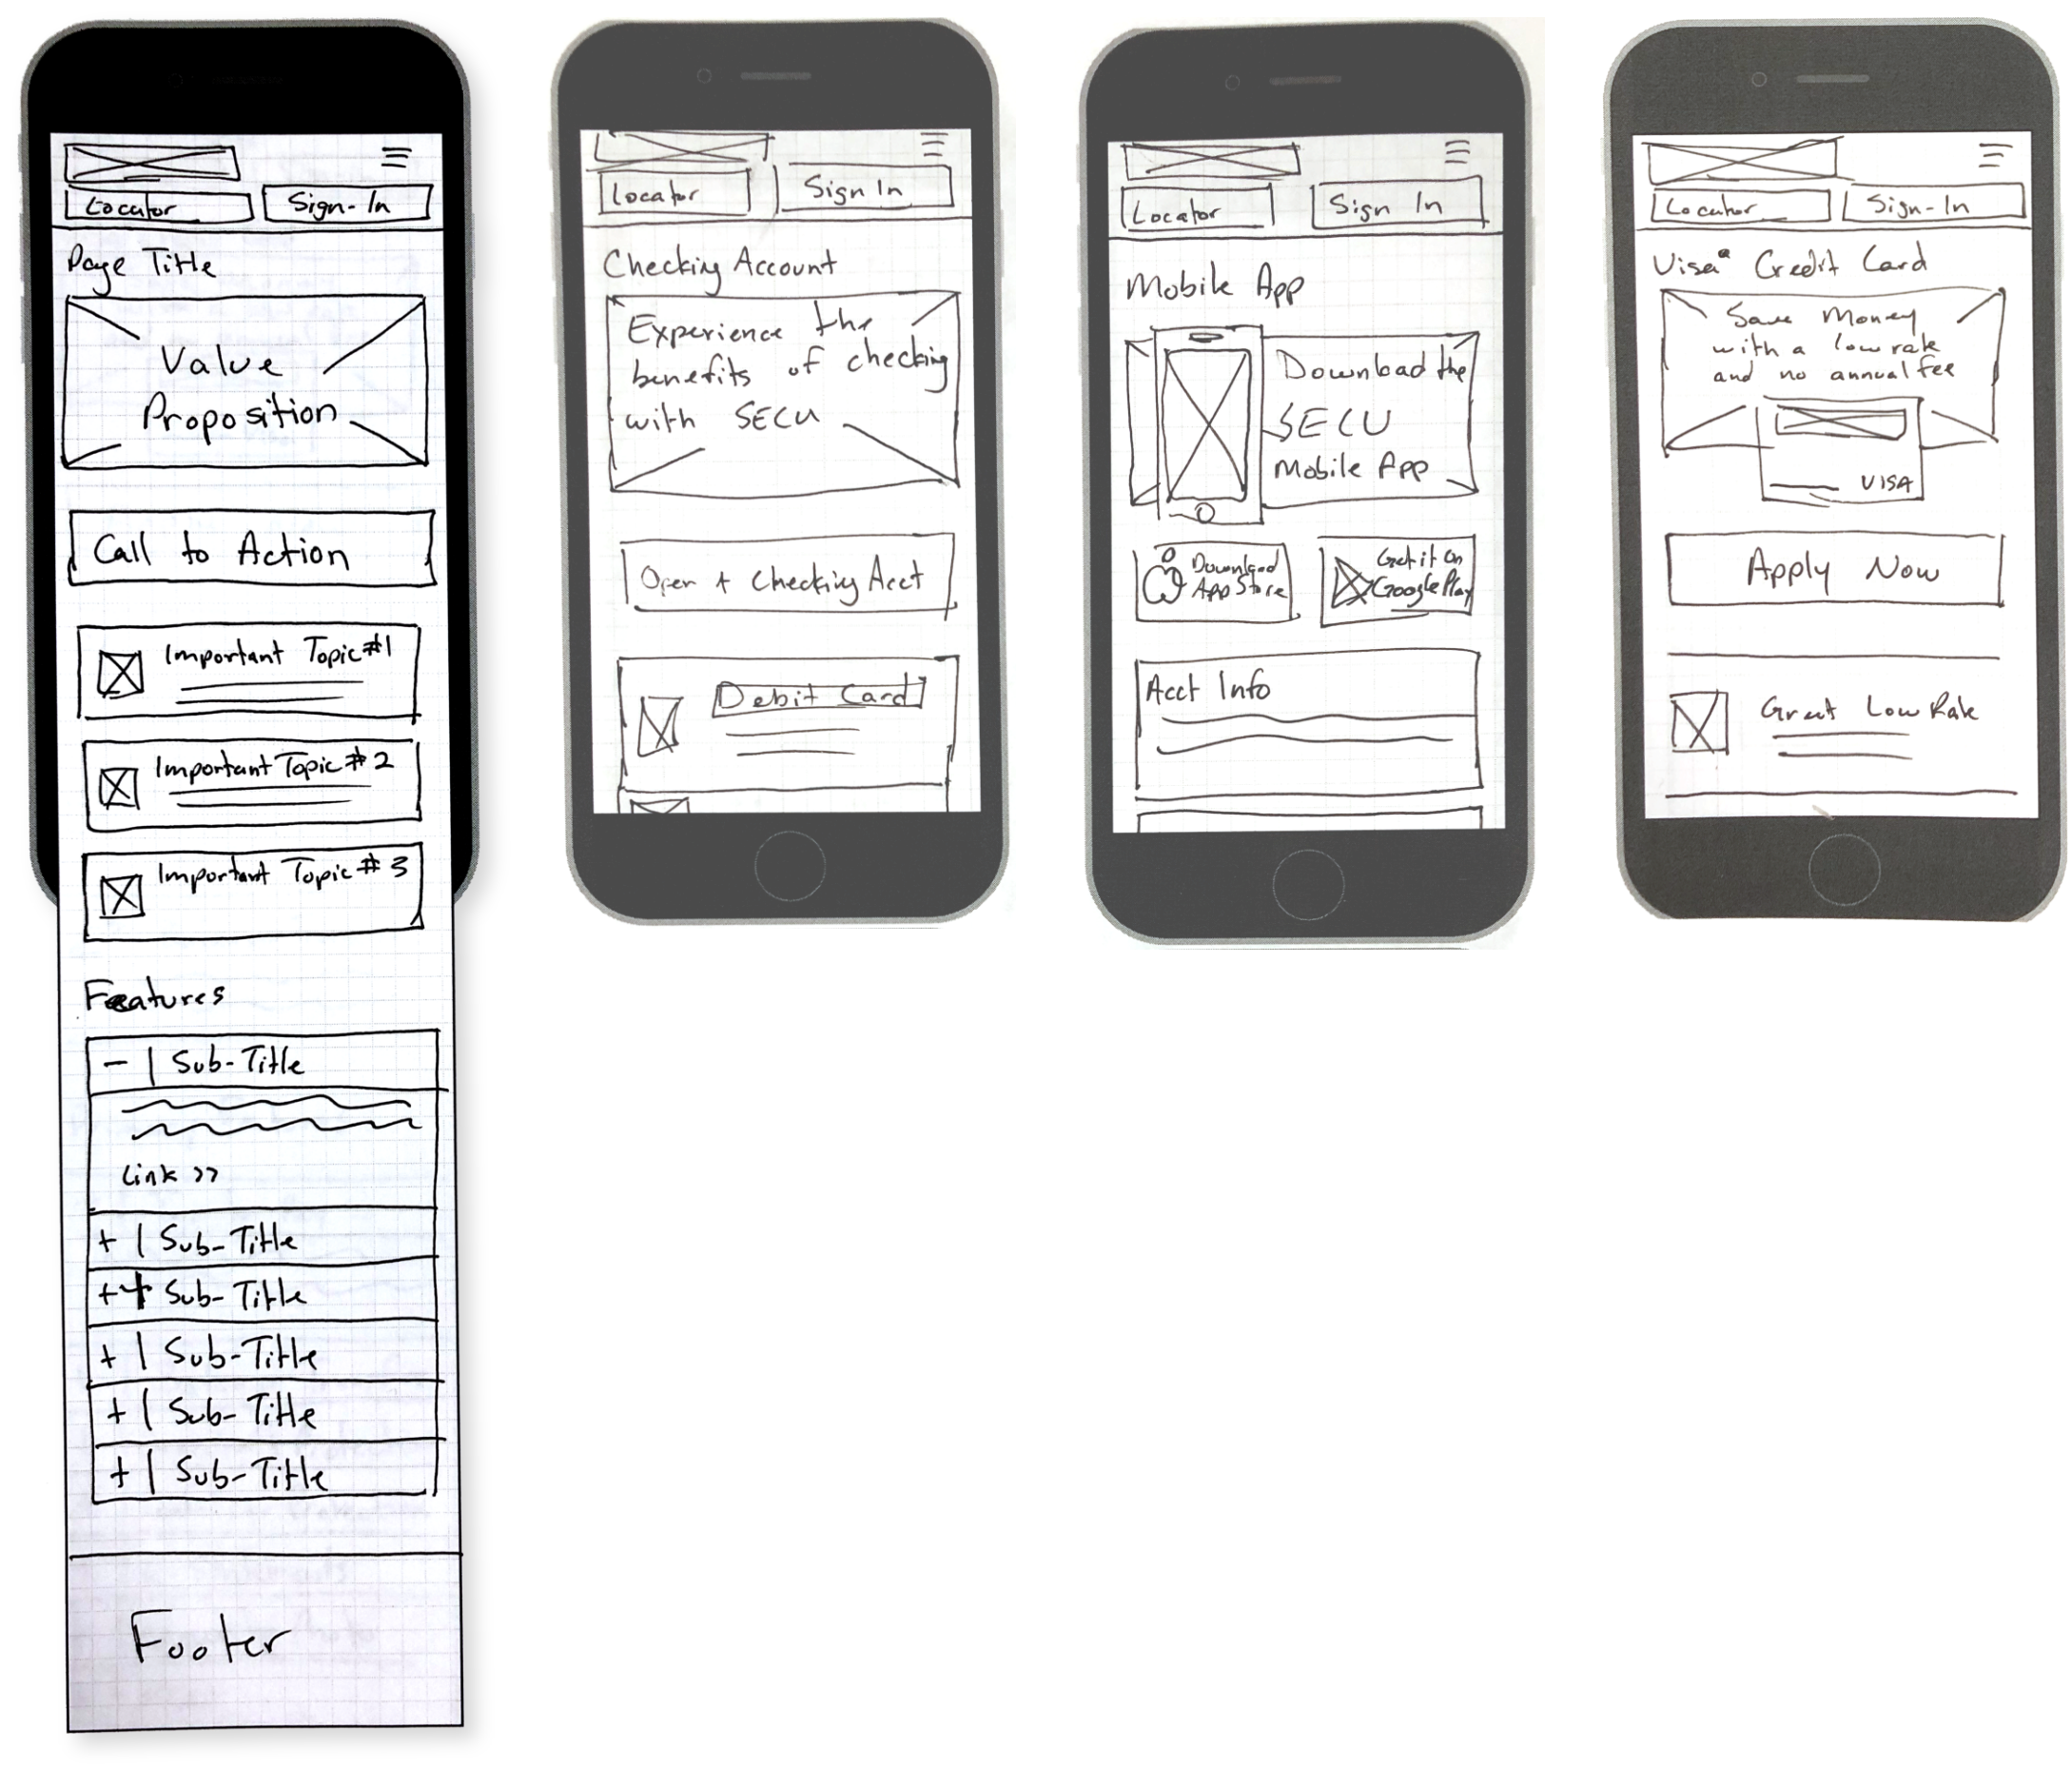 Locator
Sign-In
Page Title
Value
Proposition
Call to Action
Important Topic #1
Important Topic #2
Important Topic #3
Features
- | Sub-Title
Link >>
+ | Sub-Title
++ Sub-Title
+ | Sub-Title
+ | Sub-Title
+ | Sub-Title
Footer
Locator
Sign In
Checking Account
Experience the
benefits of checking
with SECU
Open + Checking Acct
Debit Card
Locator
Sign In
Mobile App
Download the
SECU
Mobile App
Download
App Store
Get it on
Google Play
Acct Info
Locator
Sign-In
Visa® Credit Card
Save Money
with a low rate
and no annual fee
VISA
Apply Now
Great Low Rate